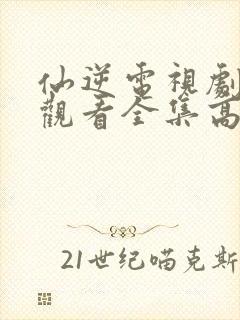 仙逆電視劇
觀看全集高
21世纪喵克斯